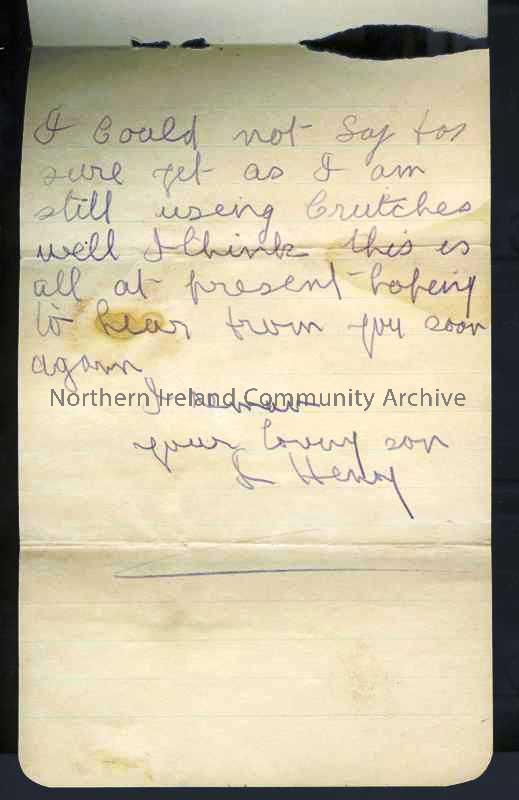 I Could not Say for
sure yet as I am
still using Crutches
well I think this is
all at present hopeing
to hear from you soon
again
Northern Ireland Community Archive
I remain
your loving son
Henry